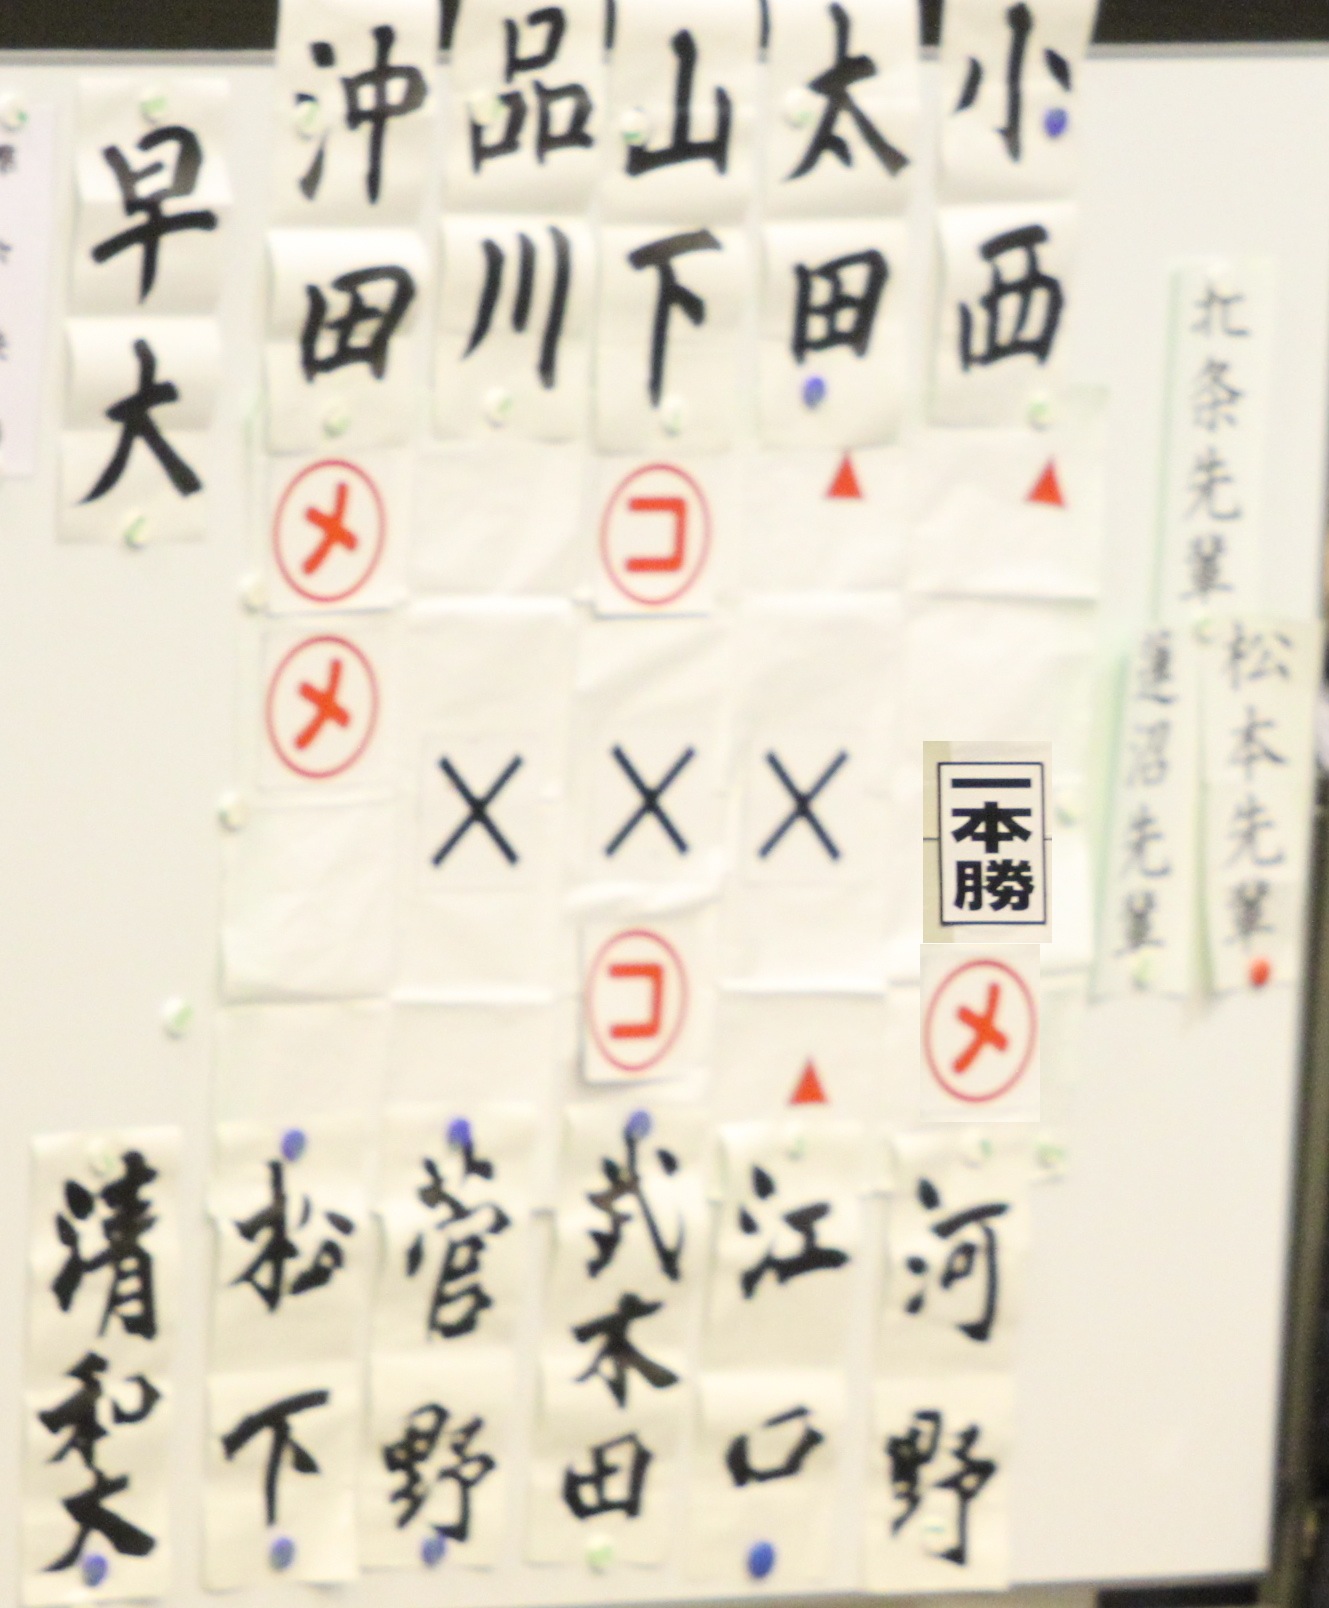 早大
小西
太田
山下
品川
沖田
メ
コ
メ
一本勝
コ
メ
清和大
河野
江口
武木田
菅野
松下
北条先輩
松本先輩
蓮沼先輩